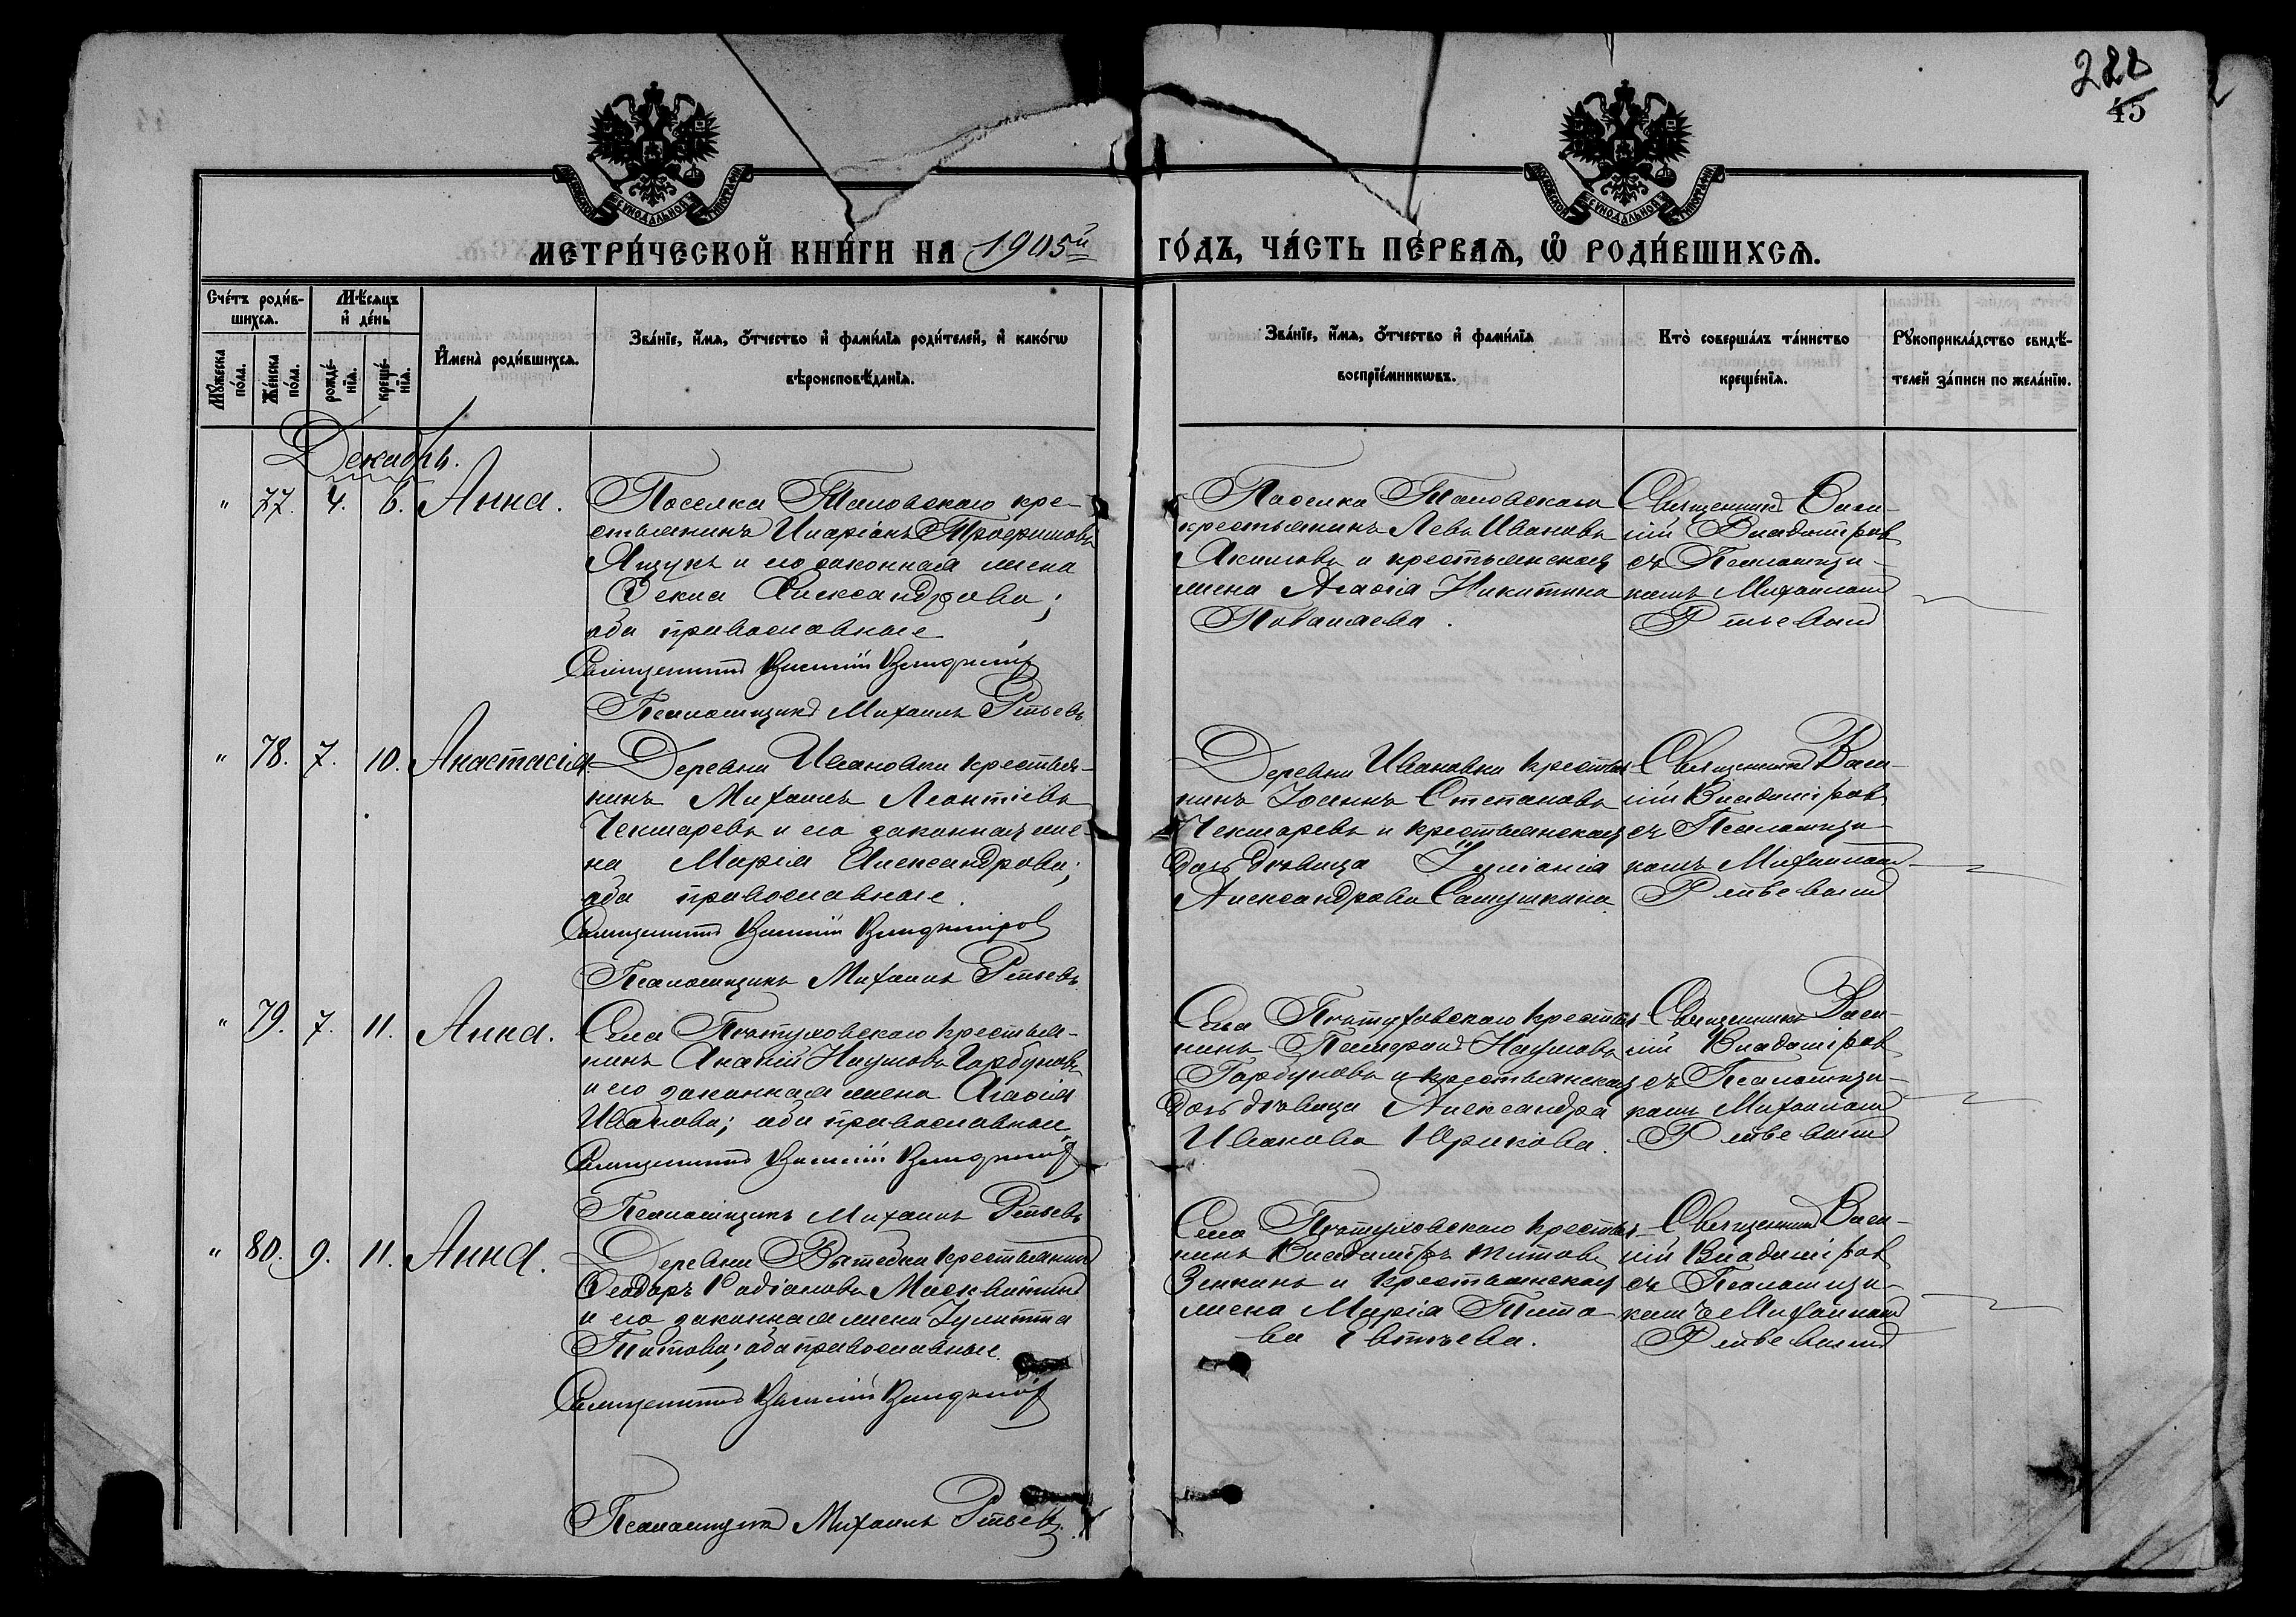 288
45
МЕТРИ́ЧЕСКОЙ КНИ́ГИ НА 1905й ГО́ДЪ, ЧА́СТЬ ПЕ́РВАѦ, Ѡ҆ РОДИ́ВШИХСѦ.
Сче́тъ роди́в-
шихсѧ.
Мѣ́сѧцъ
и҆ де́нь
Мꙋ́жеска по́ла.
Же́нска по́ла.
рожде́-нїѧ.
креще́-нїѧ.
И҆мена̀ роди́вшихсѧ.
Зва́нїе, и҆́мѧ, ѻ҆́тчество и҆ фами́лїѧ роди́телей, и҆ како́гѡ
вѣроисповѣ́данїѧ.
Зва́нїе, и҆́мѧ, ѻ҆́тчество и҆ фами́лїѧ
воспрїе́мникѡвъ.
Кто̀ соверша́лъ та́инство
креще́нїѧ.
Рꙋкоприкла́дство свидѣ́-
телей за́писи по жела́нїю.
Декабрь.
" 77. 4. 6. Анна.
Поселка Таловскаго кре-
стьянинъ Иларіонъ Трофимовъ
Ящукъ и его законная жена
Фекла Александрова;
оба православные
Священникъ Василій Владиміровъ
Псаломщикъ Михаилъ Ртвевъ
Поселка Таловскаго
крестьянинъ Левъ Ивановъ
Акимовъ и крестьянская
жена Агаѳія Никитина
Священникъ Васи-
лій Владиміровъ
съ Псаломщи-
комъ Михаиломъ
Ртвевымъ
" 78. 7. 10. Анастасія.
Деревни Ивановки крестья-
нинъ Михаилъ Леонтіевъ
Чекмаревъ и его законная же-
на Марія Александрова;
оба православные.
Священникъ Василій Владиміровъ
Псаломщикъ Михаилъ Ртвевъ
Деревни Ивановки крестья-
нинъ Іоаннъ Степановъ
Чекмаревъ и крестьянская
дочь дѣвица Іуліанія
Александрова Самушкина
Священникъ Васи-
лій Владиміровъ
съ Псаломщи-
комъ Михаиломъ
Ртвевымъ
" 79. 7. 11. Анна.
Села Пѣтуховскаго крестья-
нинъ Ананій Наумовъ Горбуновъ
и его законная жена Агаѳія
Иванова; оба православные
Священникъ Василій Владиміровъ
Псаломщикъ Михаилъ Ртвевъ
Села Пѣтуховскаго крестья-
нинъ Наумовъ
Горбуновъ и крестьянская
дочь дѣвица Александра
Иванова Юрикова.
Священникъ Васи-
лій Владиміровъ
съ Псаломщи-
комъ Михаиломъ
Ртвевымъ
" 80. 9. 11. Анна.
Деревни Вытебки крестьянинъ
Ѳеодоръ Родіоновъ Москвитинъ
и его законная жена Іулитта
Титова; оба православные.
Священникъ Василій Владиміровъ
Псаломщикъ Михаилъ Ртвевъ
Села Пѣтуховскаго крестья-
нинъ Владиміръ Титовъ
Зенкинъ и крестьянская
жена Марія Тито-
ва Евтѣева.
Священникъ Васи-
лій Владиміровъ
съ Псаломщи-
комъ Михаиломъ
Ртвевымъ